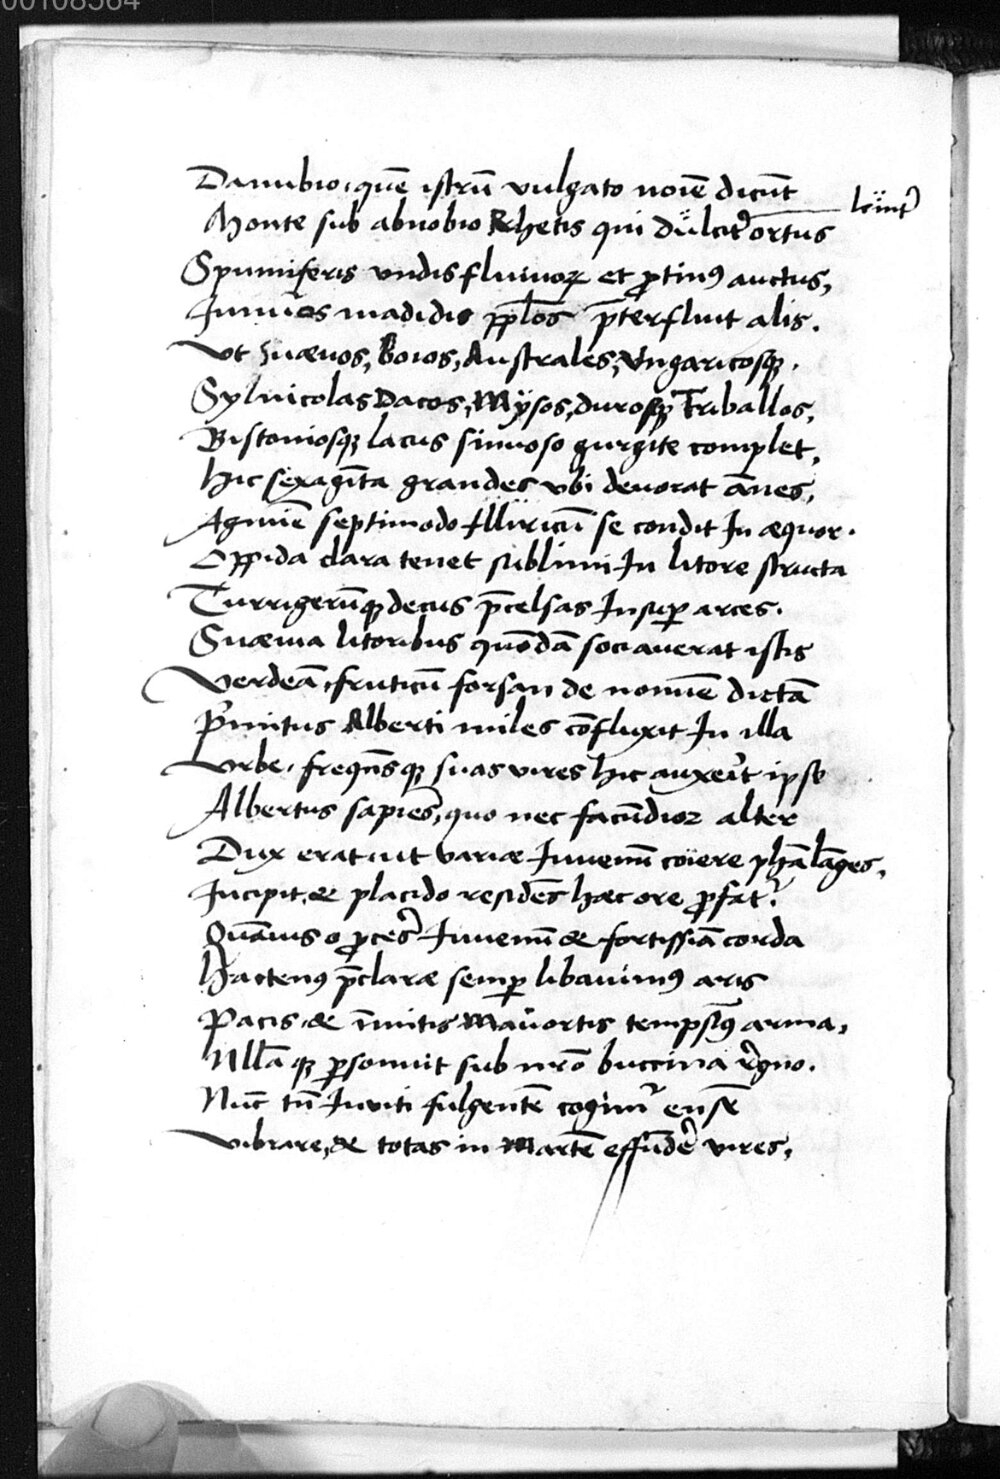 00108364
Danubio, quē istrū vulgato noīe dicūt
Monte sub abnobio Rhetis qui dülcit̾ ortus lẽint̾
Spumiferis vndis fluuioꝝ et ꝓtinꝰ auctus,
Inmūes madidis pp̄los p̄terfluit alis.
Vt Suæuos, Boios, Australes, Vngaricosqꝫ.
Syluicolas Dacos, Mÿsos, durosqꝫ Triballos,
Bistoniosqꝫ lacus sinuoso gurgite complet,
Hic sexagīta grandes vbi deuorat ānes,
Agmīe septimodo Illiricū se condit In æquor.
Oppida clara tenet sublimi In litore structa
Turrigerūqꝫ decus p̄celsas Insuꝑ arces.
Suæuia litoribus quōdā sociauerat istis
Verdeā, fruticū forsan de nomīe dictā
Pͥmitus Alberti miles cōfluxit In illa
Vrbe, freqn̄sqꝫ suas vires hic auxer̄t ipse
Albertus sapiēs, quo nec facūdior alter
Dux erat, ut variæ Iuuenū coiere phālāges,
Incipit, & placido residēs hæc ore ꝓfat̾.
Quāuis o ꝓcer̄s Iuuenū & fortissīa corda
Hactenꝰ p̄claræ semꝑ libauimꝰ aris
Pacis, & īmitis Mauortis tempsīꝰ arma,
Nllāqꝫ ꝑsonuit sub nr̄o buccina r̄gno.
Nūc tn̄ Inuiti fulgentē cogimͬ ensē
Vibrare, & totas in Martē effūder̄ vires,